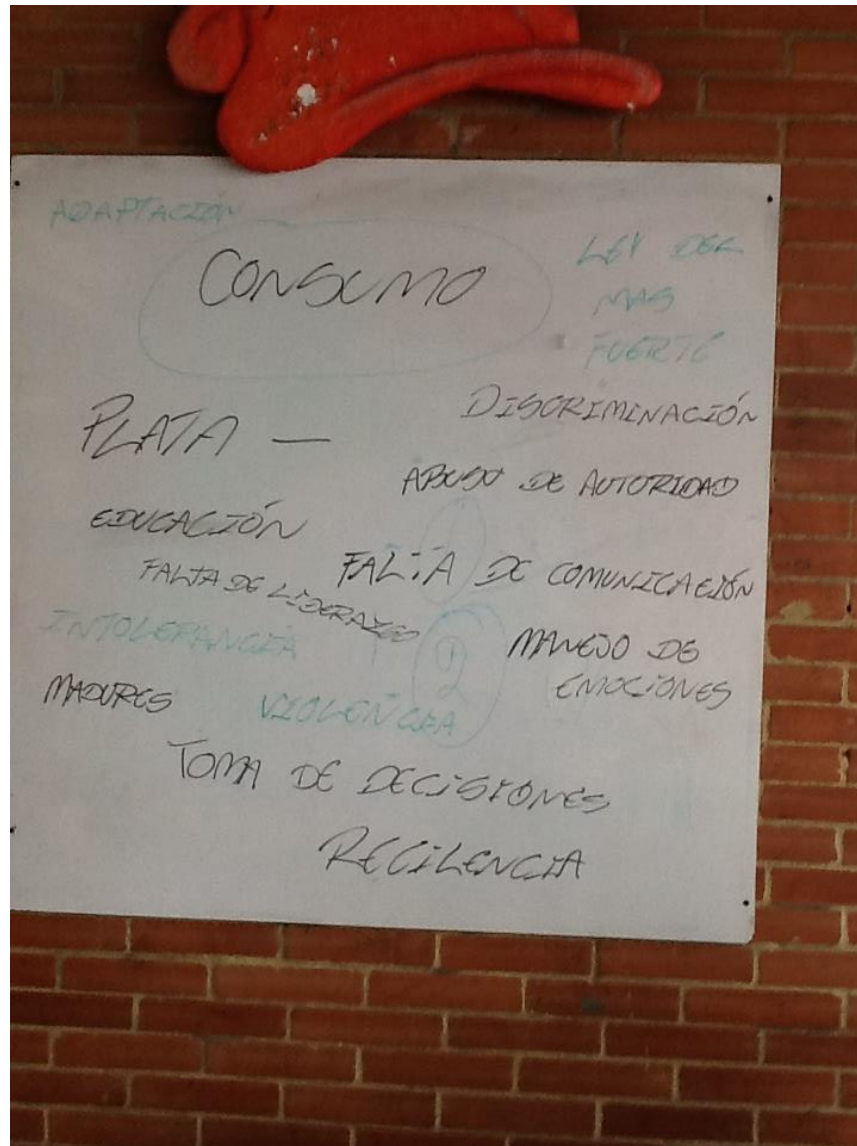 ADAPTACIÓN
CONSUMO
LEY DEL
MAS
FUERTE
PLATA —
DISCRIMINACIÓN
ABUSO DE AUTORIDAD
EDUCACIÓN
FALTA DE COMUNICACIÓN
FALTA DE LIDERAZGO
INTOLERANCIA
2
MANEJO DE
EMOCIONES
MADURES
VIOLENCIA
TOMA DE DECISIONES
RECILENCIA